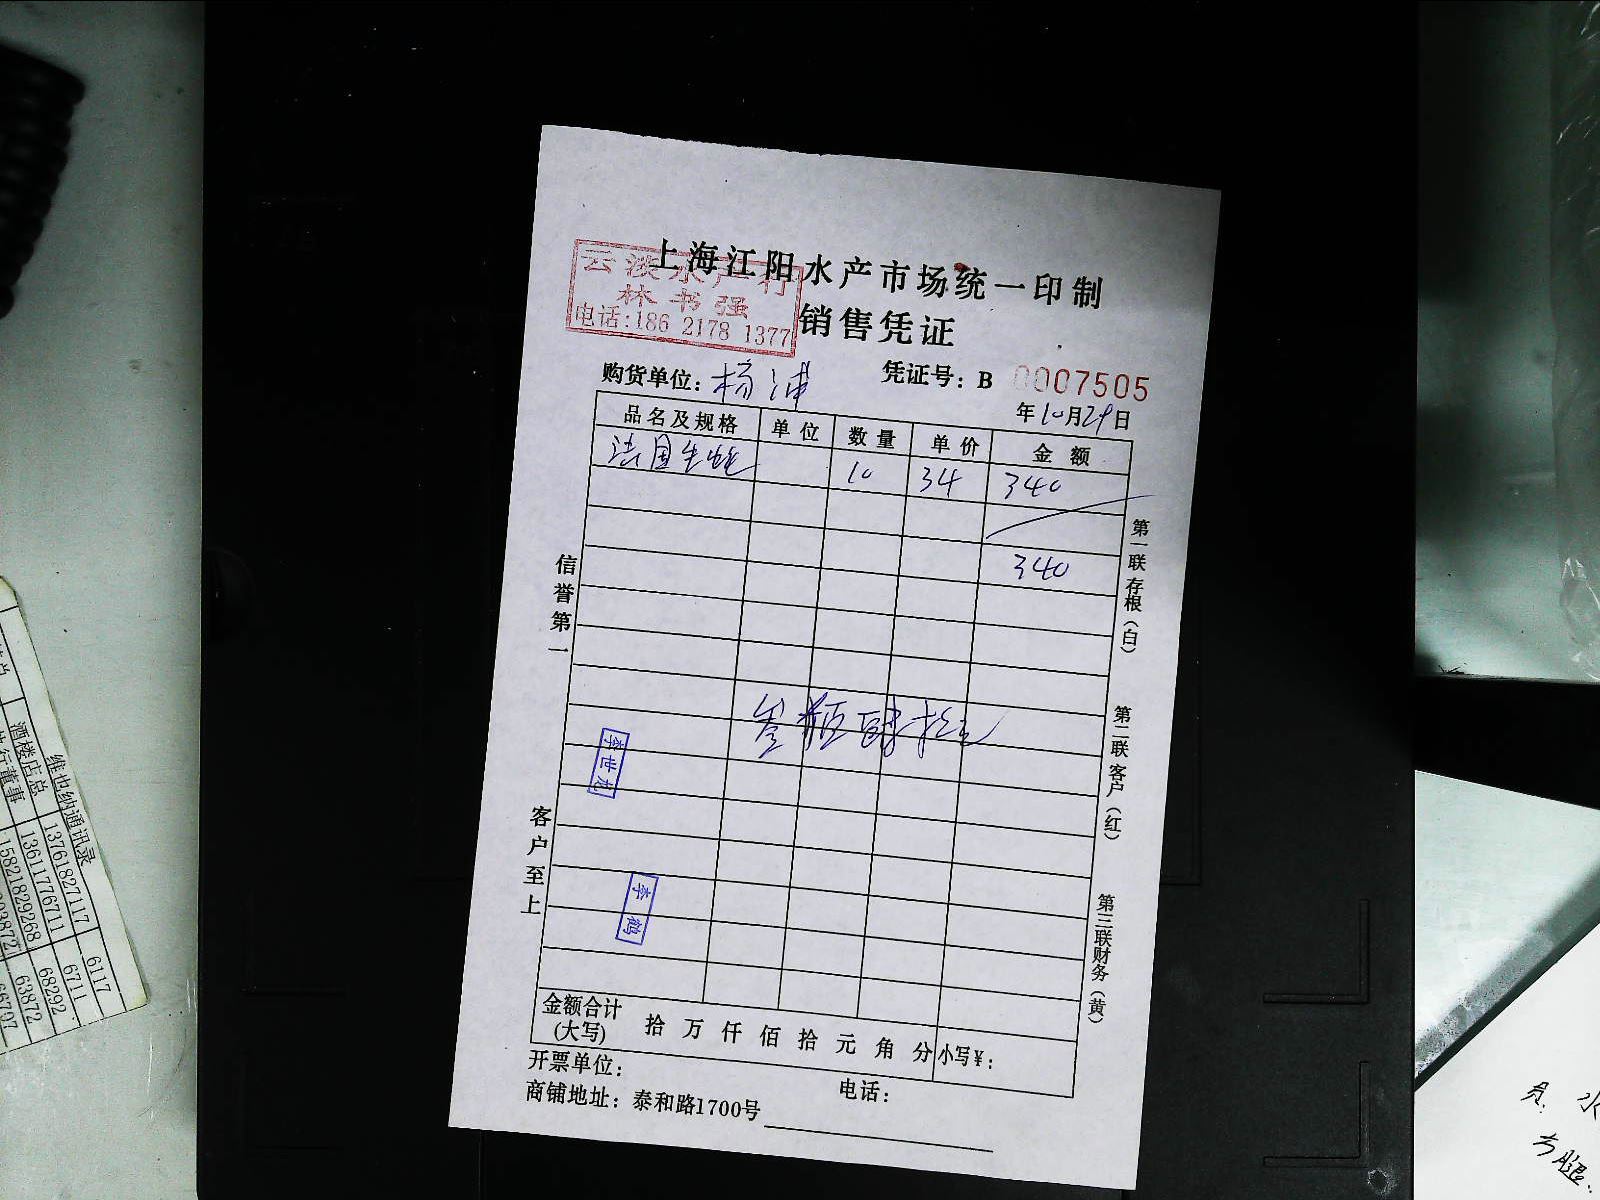 上海江阳水产市场统一印制
销售凭证
云淡水产行
林书强
电话:186 2178 1377
购货单位: 杨浦
凭证号: B 0007505
年10月29日
品名及规格 单位 数量 单价 金额
法国生蚝 10 34 340
340
叁佰肆拾元
信誉第一
客户至上
第一联存根(白)
第二联客户(红)
第三联财务(黄)
李鹤
金额合计(大写) 拾万仟佰拾元角分 小写¥:
开票单位:
电话:
商铺地址: 泰和路1700号
维也纳通讯录
酒楼店总 13761827117 6117
13611776711 6711
15821829268 68292
63872